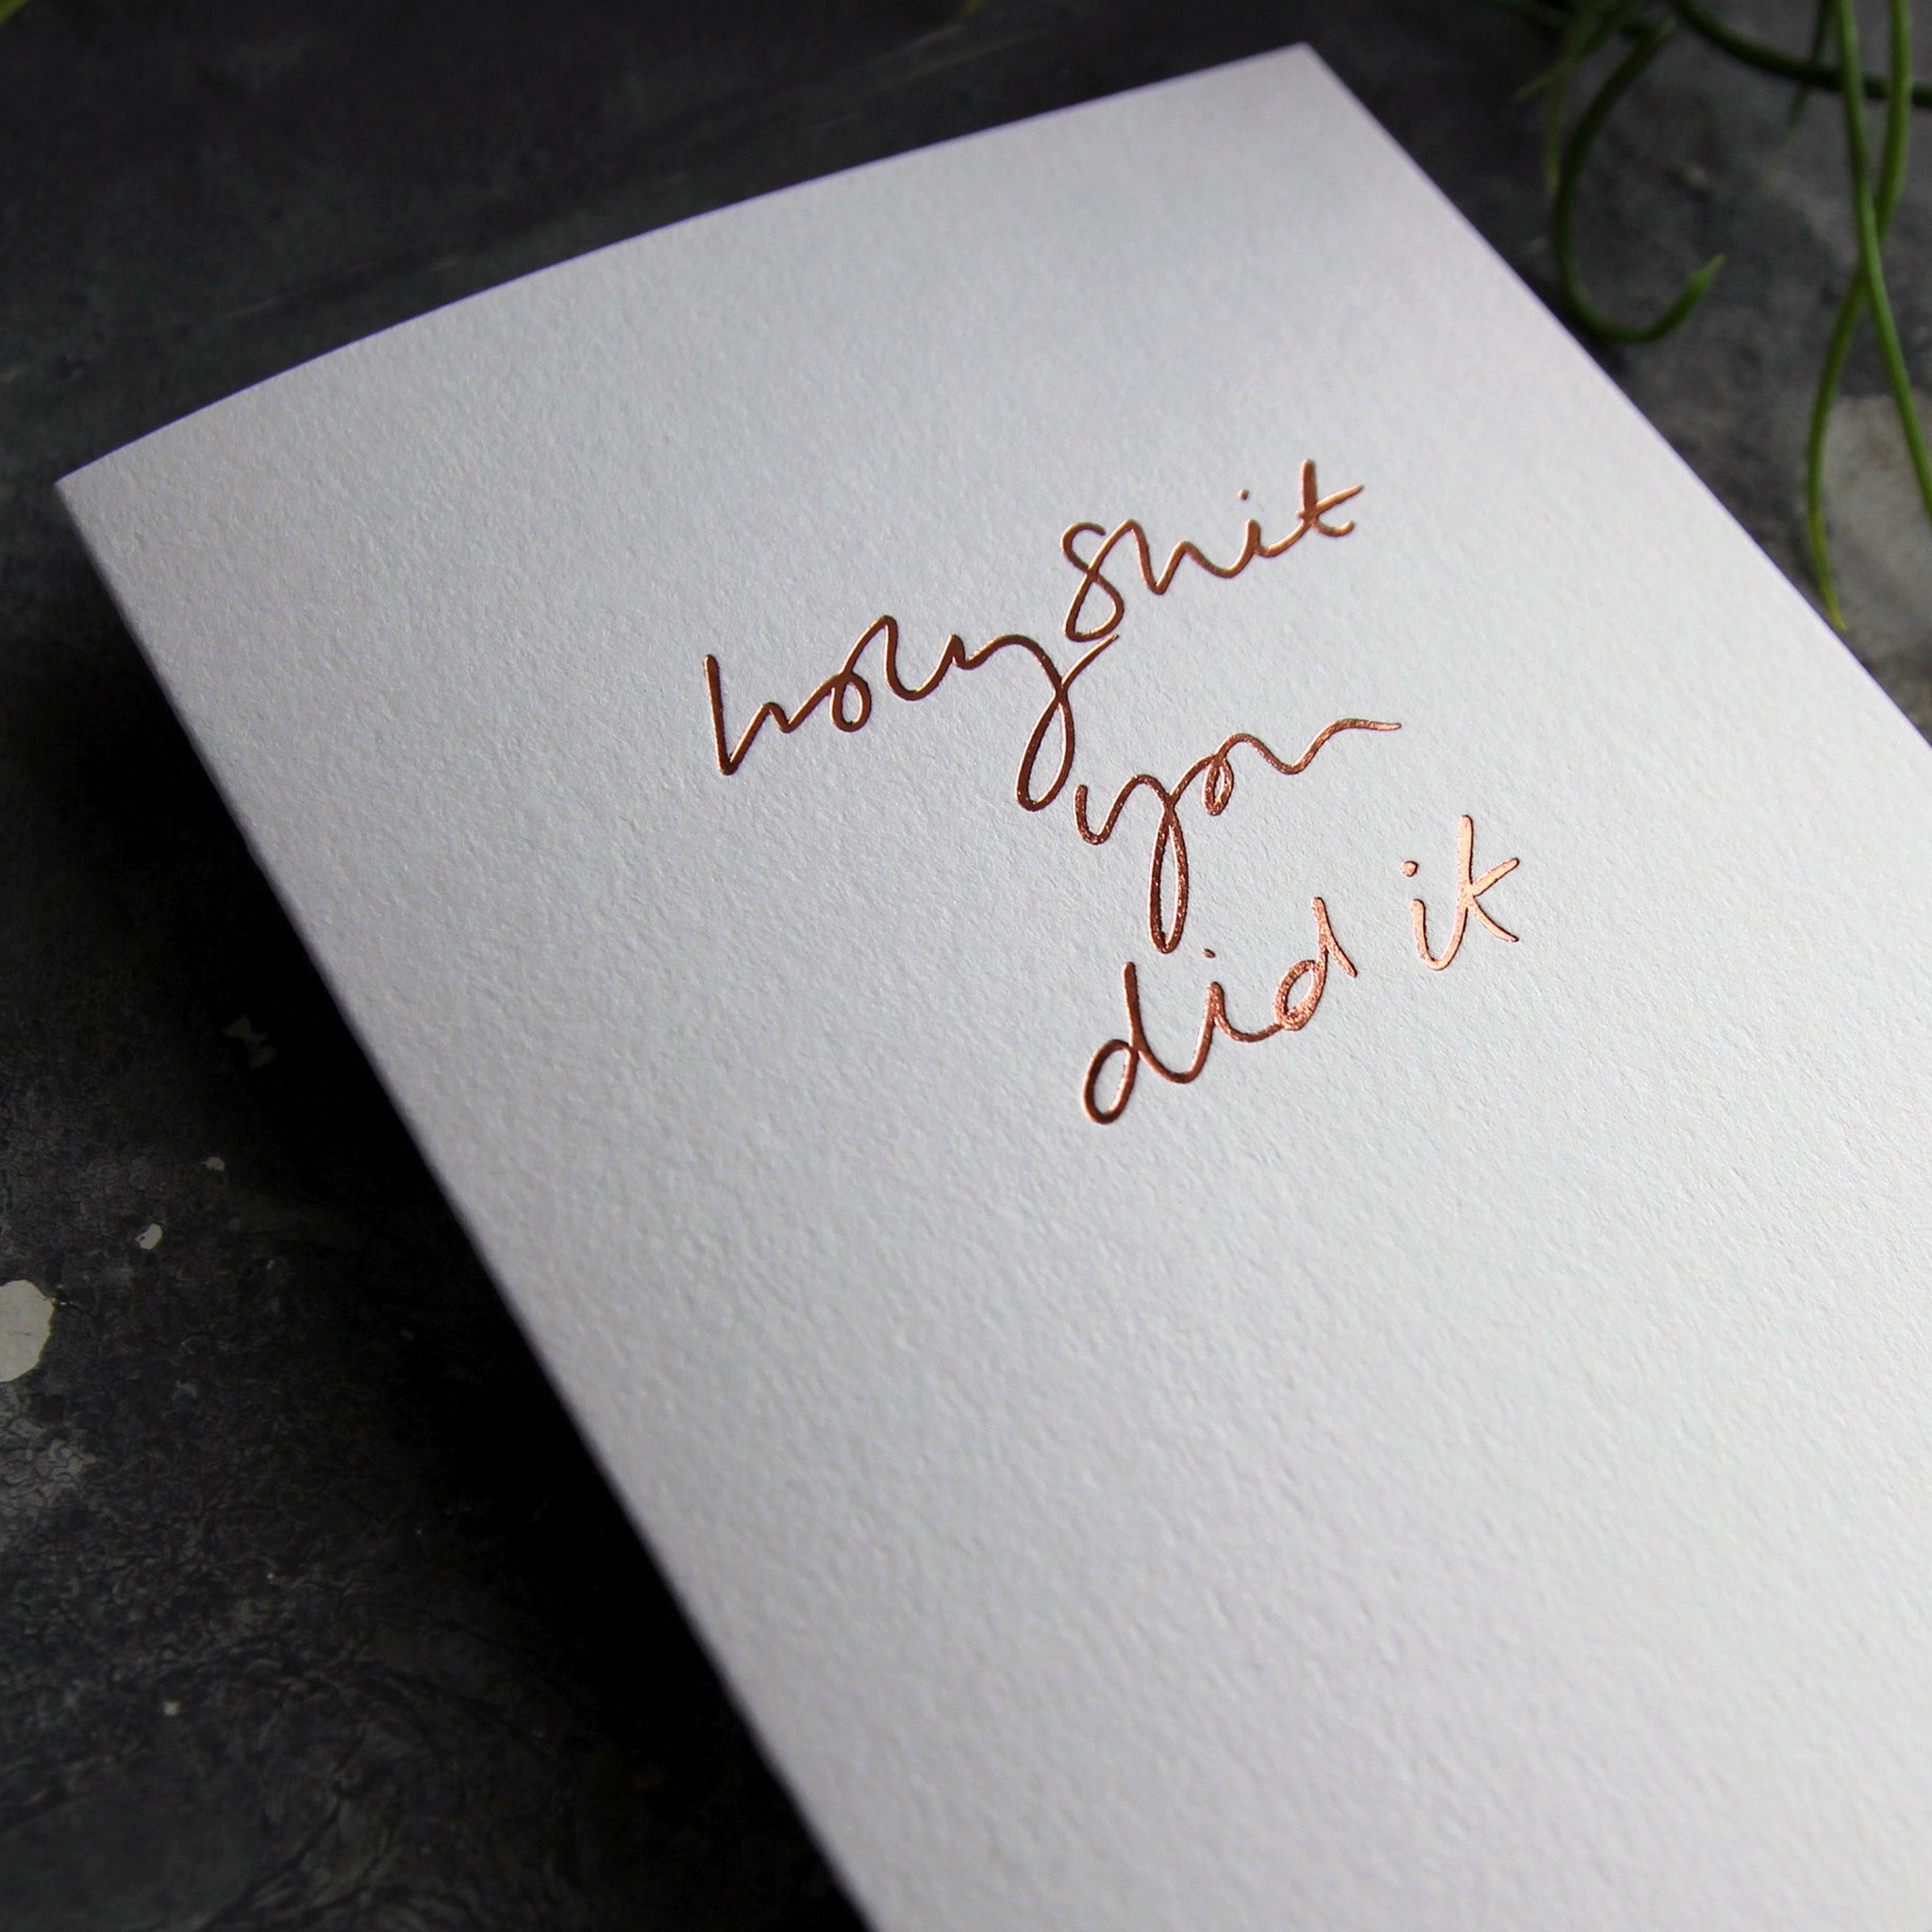 holy shit
you
did it